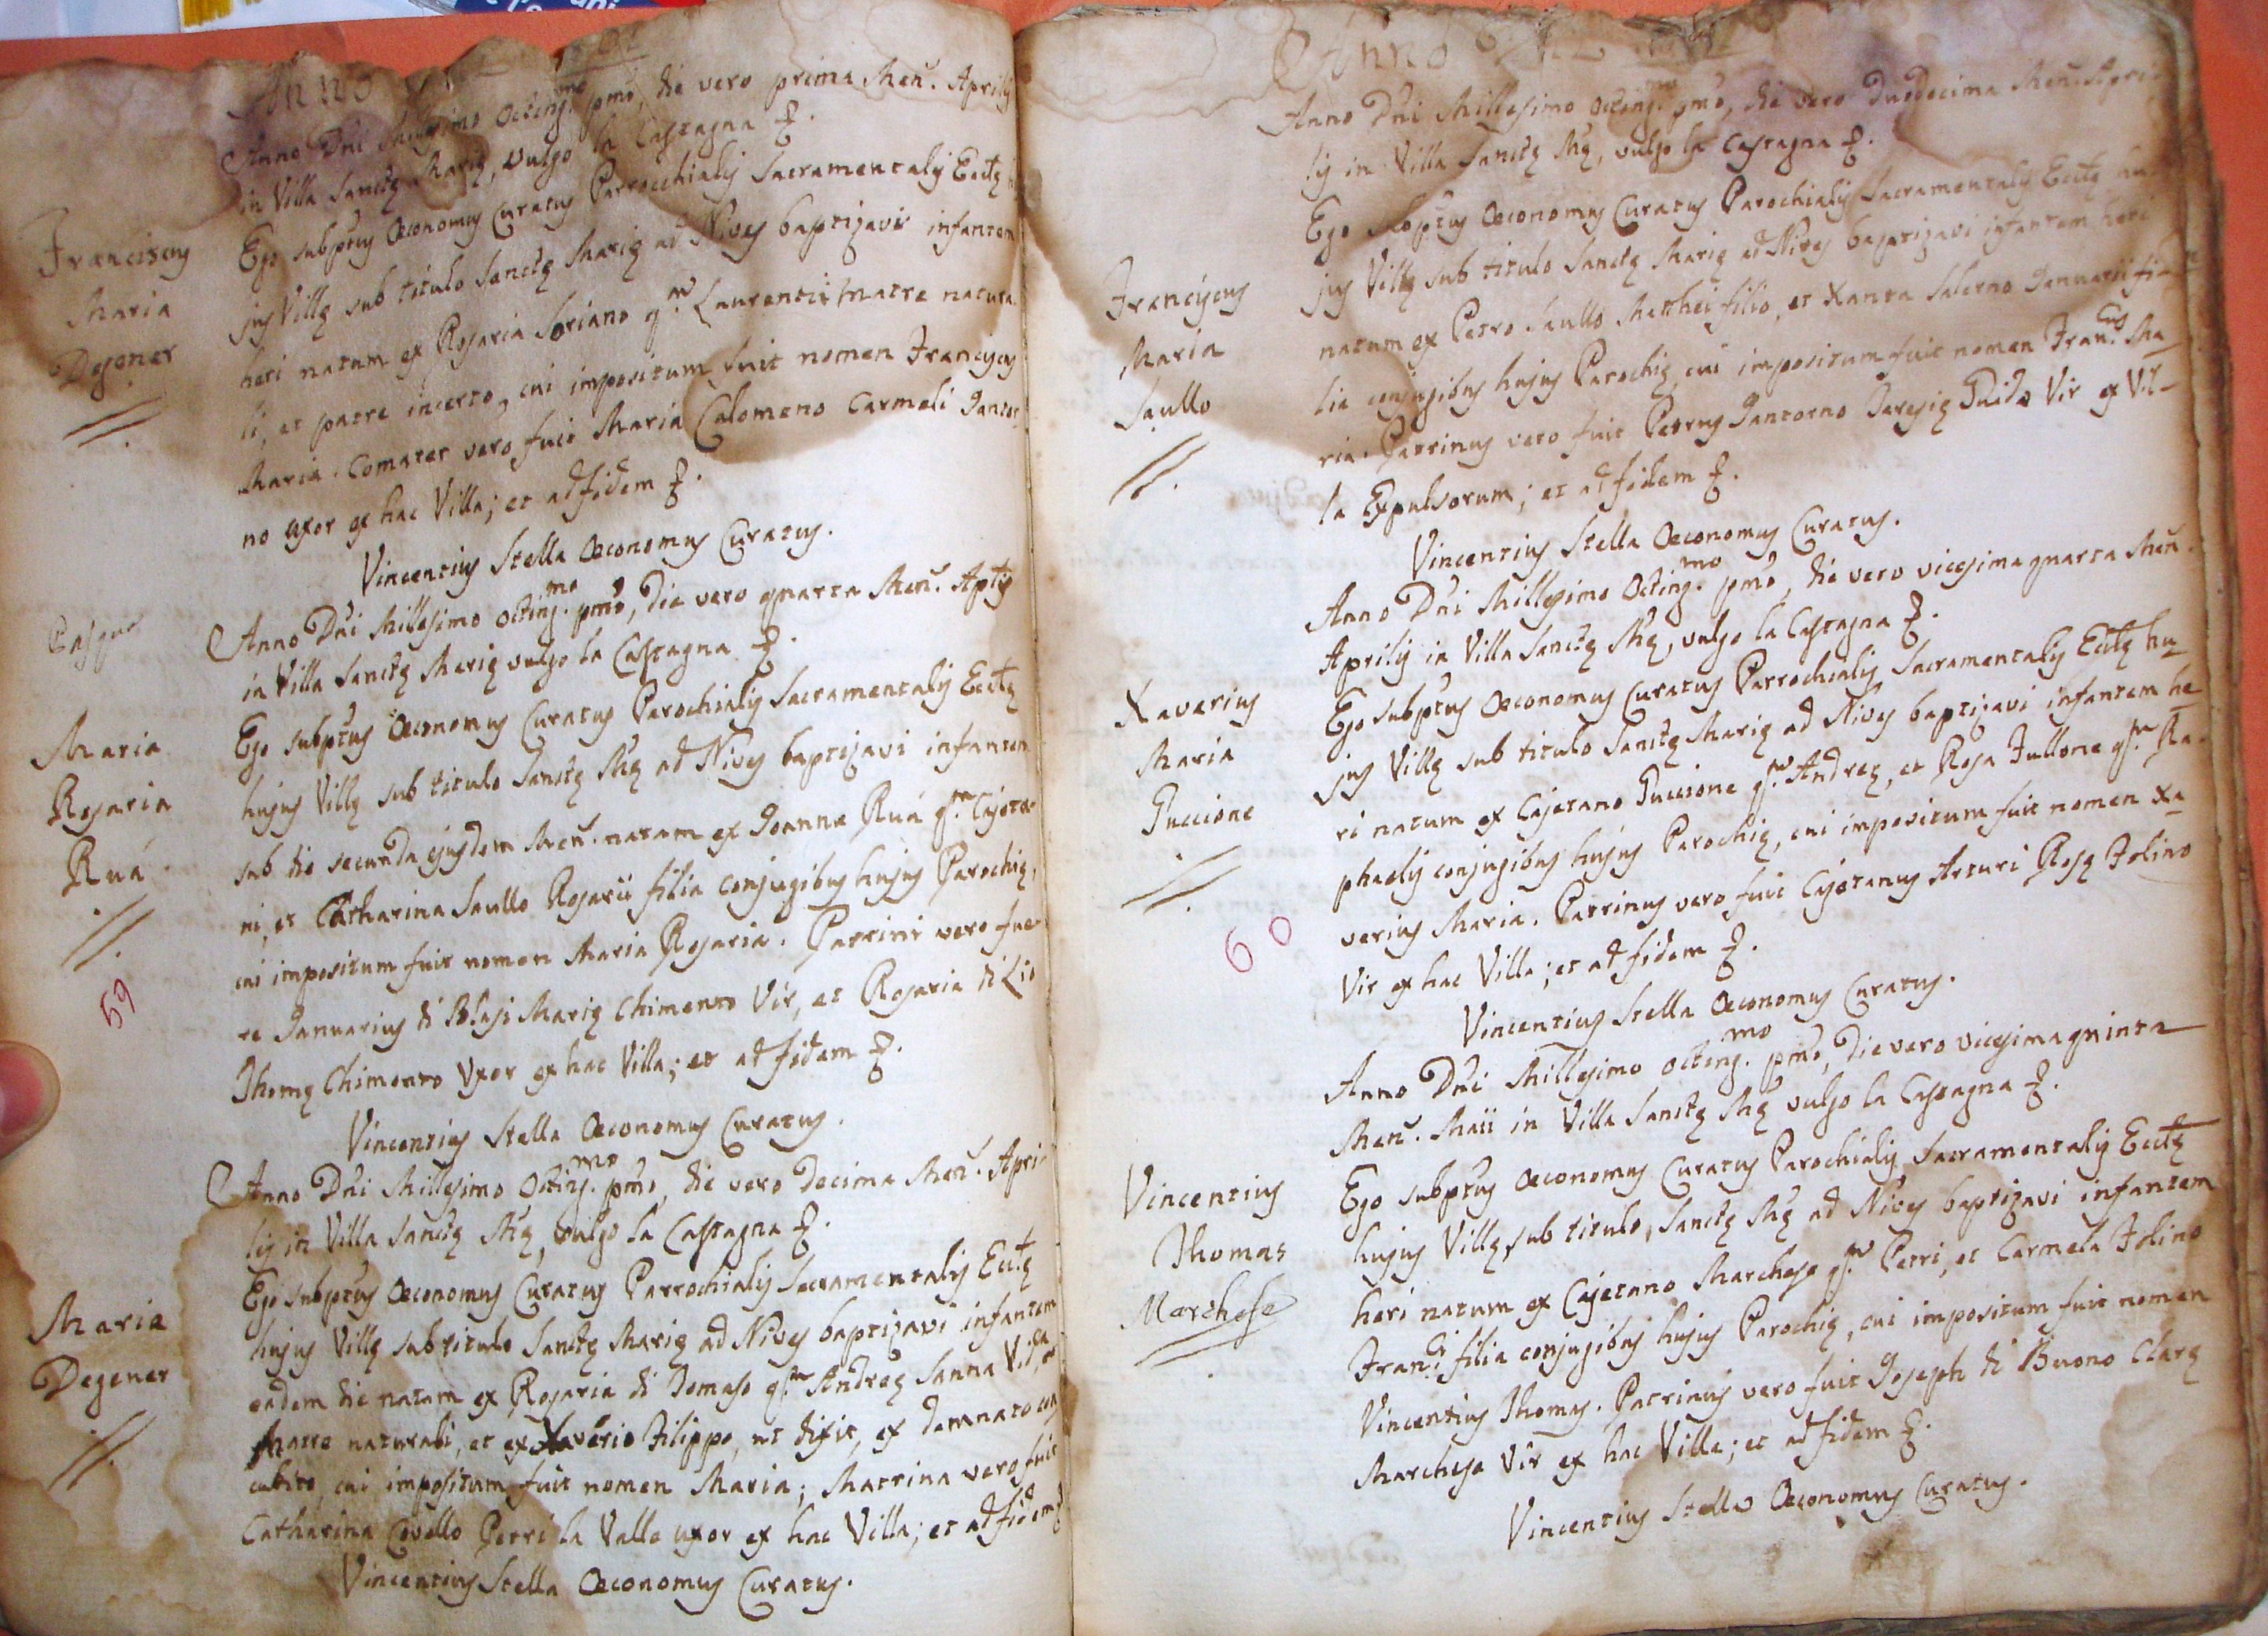 Anno
Anno Dni Millesimo Octing.mo pmo, die vero prima Men. Aprilis
in Villa Sanctę Marię, vulgo la Castagna &.
Franciscus
Maria
Degener
Ego subptus Œconomus Curatus Parrocchialis Sacramentalis Ecctę
jus Villę sub titulo Sanctę Marię ad Nives baptizavi infantem
heri natum ex Rosaria Soriano q.m Laurentii matre natura
li, et patre incerto, cui impositum fuit nomen Franciscus
Maria. Comater vero fuit Maria Colomeno Carmeli Jantor
no Uxor ex hac Villa; et ad fidem &.
Vincentius Stella Œconomus Curatus.
Anno Dni Millesimo Octing.mo pmo, die vero quarta Men. Aplis
in Villa Sanctę Marię vulgo la Castagna &.
Maria
Rosaria
Ruá
Ego subptus Œconomus Curatus Parochialis Sacramentalis Ecctę
hujus Villę sub titulo Sanctę Mę ad Nives baptizavi infantem
sub die secunda ejusdem Men. natam ex Joanne Ruá q.m Cajeta-
ni, et Catharina Saullo Rosarii filia conjugibus hujus Parochię,
cui impositum fuit nomen Maria Rosaria. Patrini vero fue
re Januarius di Blasi Marię Chimento Vir, et Rosaria di Lio
Thomę Chimento Uxor ex hac Villa; et ad fidem &.
59
Vincentius Stella Œconomus Curatus.
Anno Dni Millesimo Octing.mo pmo, die vero decima Men. Apri-
lis in Villa Sanctę Mę, vulgo la Castagna &.
Maria
Degener
Ego subptus Œconomus Curatus Parrochialis Sacramentalis Ecctę
hujus Villę sub titulo Sanctę Marię ad Nives baptizavi infantem
eadem die natam ex Rosaria di Tomaso q.m Andreę Sanna Vid.a, et
Matre naturali, et ex Xaverio Filippo, ut dixit, ex damnato con
cubito, cui impositum fuit nomen Maria; Matrina vero fuit
Catharina Covello Petri la Valle uxor ex hac Villa; et ad fidem &
Vincentius Stella Œconomus Curatus.
Anno
Anno Dni Millesimo Octing.mo pmo, die vero Duodecima Men. Apri
lis in Villa Sanctę Mę, vulgo la Castagna &.
Franciscus
Maria
Saullo
Ego subptus Œconomus Curatus Parochialis Sacramentalis Ecctę hu-
jus Villę sub titulo Sanctę Marię ad Nives baptizavi infantem heri
natum ex Petro Saullo Matthei filio, et Xanta Salerno Januarii fi-
lia conjugibus hujus Parochię, cui impositum fuit nomen Fran.cus Ma
ria. Patrinus vero fuit Petrus Jantorno Teresię Guido Vir ex Vil-
la Expulsorum; et ad fidem &.
Vincentius Stella Œconomus Curatus.
Anno Dni Millesimo Octing.mo pmo, die vero vicesima quarta Men.
Aprilis in Villa Sanctę Mę, vulgo la Castagna &.
Xaverius
Maria
Puccione
Ego subptus Œconomus Curatus Parrochialis Sacramentalis Ecctę hu
jus Villę sub titulo Sanctę Marię ad Nives baptizavi infantem he
ri natum ex Cajetano Puccione q.m Andreę, et Rosa Fullone q.m Ra-
phaelis conjugibus hujus Parochię, cui impositum fuit nomen Xa
verius Maria. Patrinus vero fuit Cajetanus Arturi Rosę Folino
Vir ex hac Villa; et ad fidem &.
60
Vincentius Stella Œconomus Curatus.
Anno Dni Millesimo Octing.mo pmo, die vero vicesima quinta
Men. Maii in Villa Sanctę Mę vulgo la Castagna &.
Vincentius
Thomas
Marchese
Ego subptus Œconomus Curatus Parochialis Sacramentalis Ecctę
hujus Villę sub titulo Sanctę Mę ad Nives baptizavi infantem
heri natum ex Cajetano Marchese q.m Petri, et Carmela Folino
Fran.ci filia conjugibus hujus Parochię, cui impositum fuit nomen
Vincentius Thomas. Patrinus vero fuit Joseph di Buono Clarę
Marchese Vir ex hac Villa; et ad fidem &.
Vincentius Stella Œconomus Curatus.